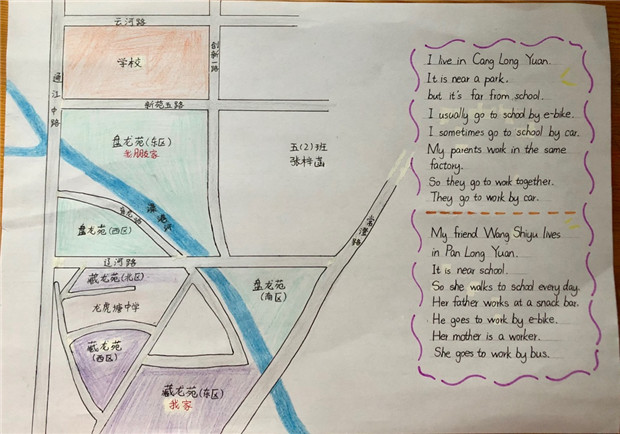 云河路
创新一路
学校
通江中路
新苑五路
盘龙苑(东区)
我朋家
五(2)班
张梓菡
盘龙苑(西区)
辽河路
藏龙苑(北区)
龙虎塘中学
藏龙苑
(西区)
盘龙苑
(南区)
藏龙苑(东区)
我家
I live in Cang Long Yuan.
It is near a park.
but it's far from school.
I usually go to school by e-bike.
I sometimes go to school by car.
My parents work in the same
factory.
So they go to work together.
They go to work by car.
My friend Wang Shiyu lives
in Pan Long Yuan.
It is near school.
So she walks to school every day.
Her father works at a snack bar.
He goes to work by e-bike.
Her mother is a worker.
She goes to work by bus.